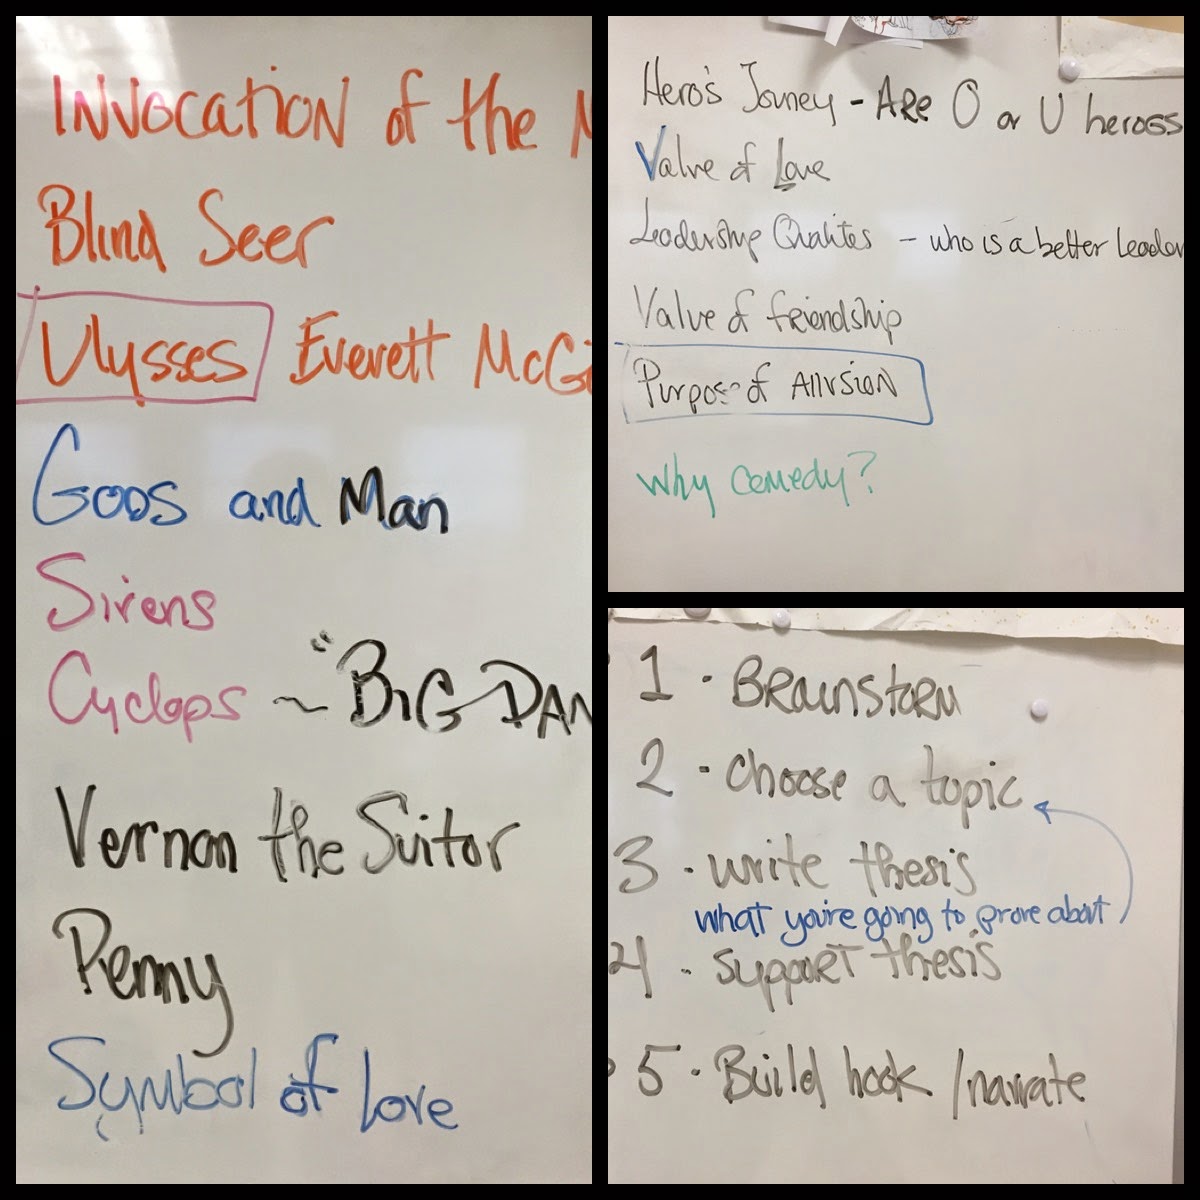 INVOCATION of the M
Blind Seer
Ulysses Everett McGi
Gods and Man
Sirens
Cyclops ~ "BIG DAN
Vernon the Suitor
Penny
Symbol of Love
Hero's Jouney - ARe O or U heroes
Value of Love
Leadership Qualites - who is a better Leader
Value of friendship
Purpose of AllusioN
Why Comedy?
1 - BRainstorm
2 - Choose a topic
3 - write thesis
what you're going to prove about
4 - SuppoRT thesis
5 - Build hook / narrate